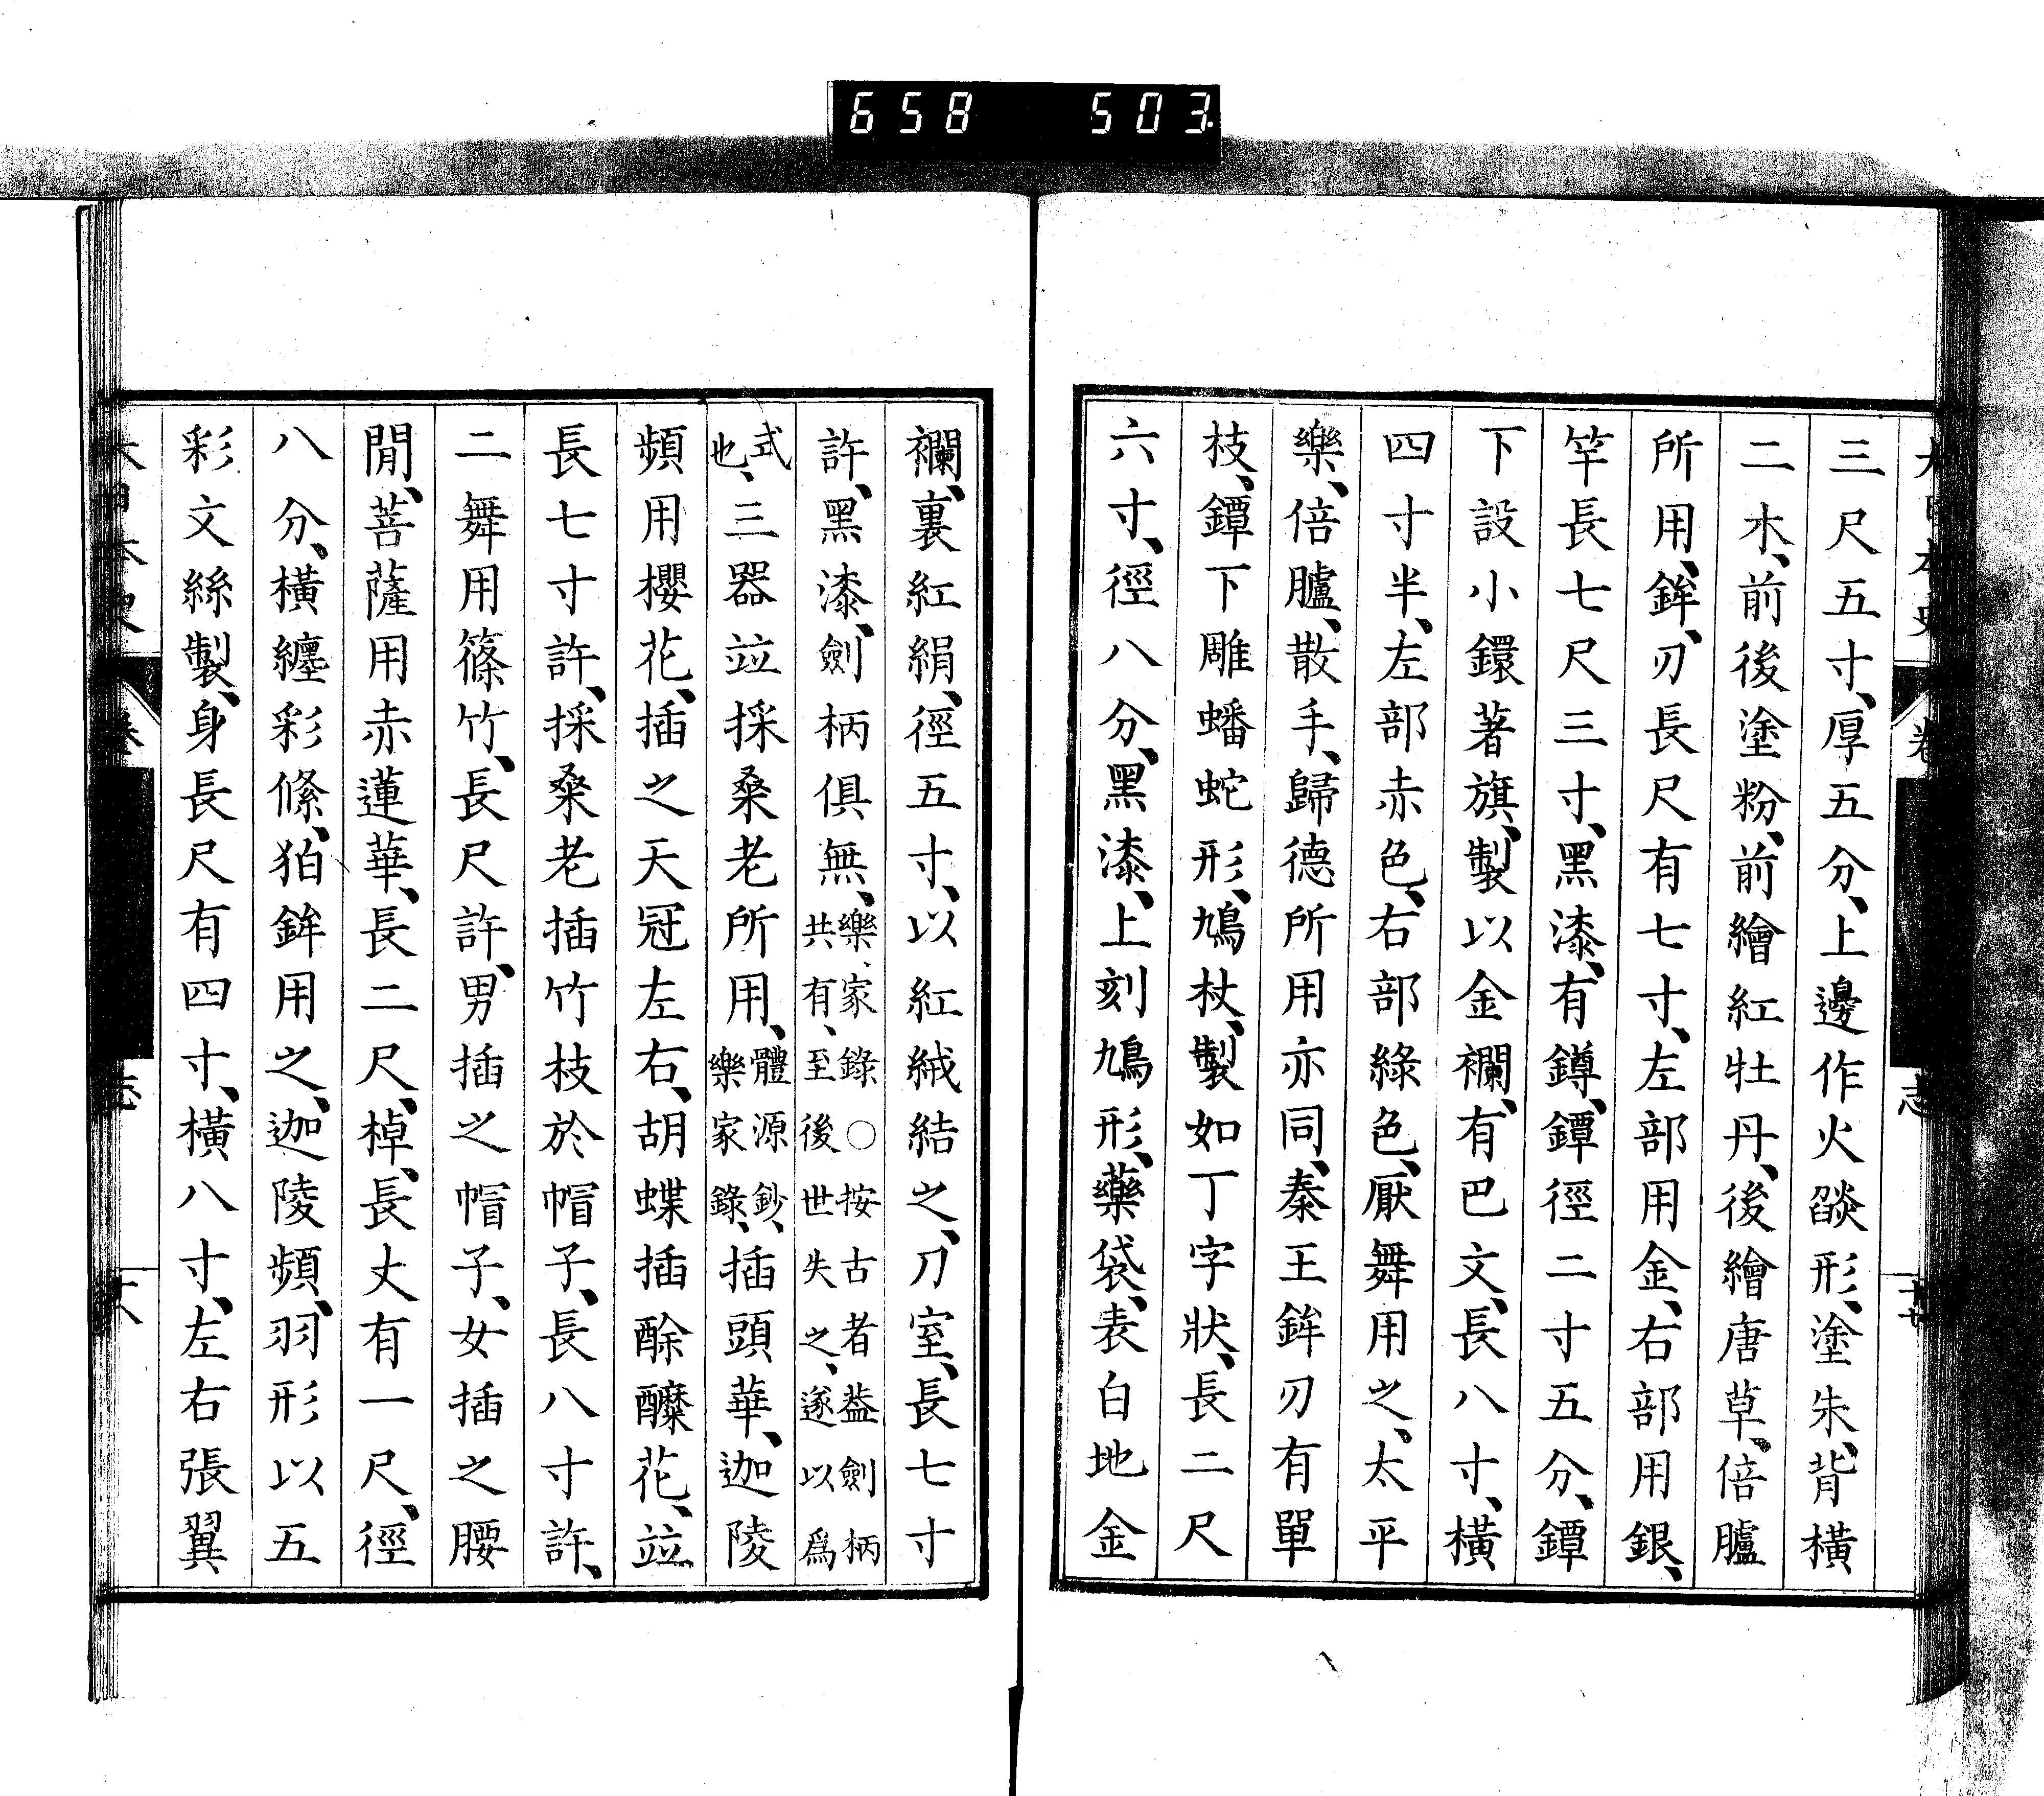 658 503
三尺五寸、厚五分、上邊作火燄形、塗朱、背橫
二木、前後塗粉、前繪紅牡丹、後繪唐草、倍臚
所用、鉾、刃長尺有七寸、左部用金、右部用銀、
竿長七尺三寸、黑漆、有鐏、鐔徑二寸五分、鐔
下設小鐶著旗、製以金襴、有巴文、長八寸、橫
四寸半、左部赤色、右部綠色、厭舞用之、太平
樂、倍臚、散手、歸德所用亦同、秦王鉾刃有單
枝、鐔下雕蟠蛇形、鳩杖、製如丁字狀、長二尺
六寸、徑八分、黑漆、上刻鳩形、藥袋、表白地金
襴、裏紅絹、徑五寸、以紅絨結之、刀室、長七寸
許、黑漆、劍柄俱無、樂家錄○按古者葢劍柄共有、至後世失之、遂以爲
式也、三器竝採桑老所用、體源鈔、樂家錄、插頭華、迦陵
頻用櫻花、插之天冠左右、胡蝶插酴醾花、竝
長七寸許、採桑老插竹枝於帽子、長八寸許、
二舞用篠竹、長尺許、男插之帽子、女插之腰
閒、菩薩用赤蓮華、長二尺、棹、長丈有一尺、徑
八分、橫纏彩絛、狛鉾用之、迦陵頻、羽形以五
彩文絲製、身長尺有四寸、橫八寸、左右張翼